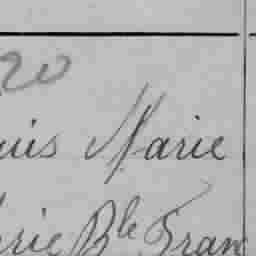 20
uis Marie
rie Ble Fran